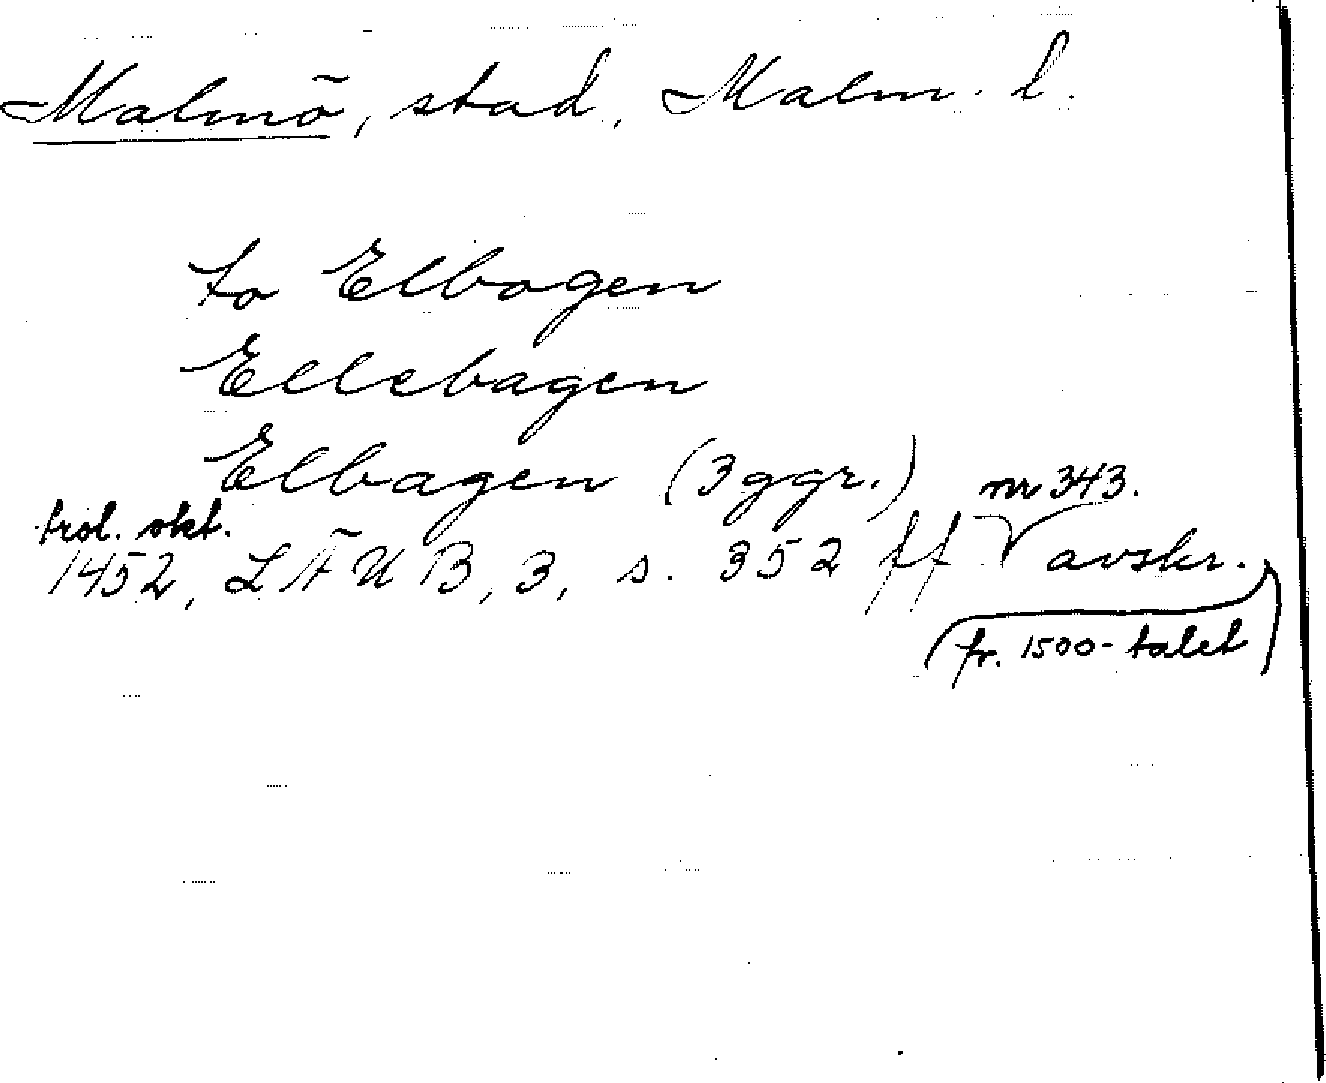 Malmö, stad, Malm. l.
to Elbogen
Ellebagen
Elbagen (3 ggr.) nr 343.
trol. okt.
1452, LÄUB, 3, s. 352 ff avskr.
(fr. 1500-talet)